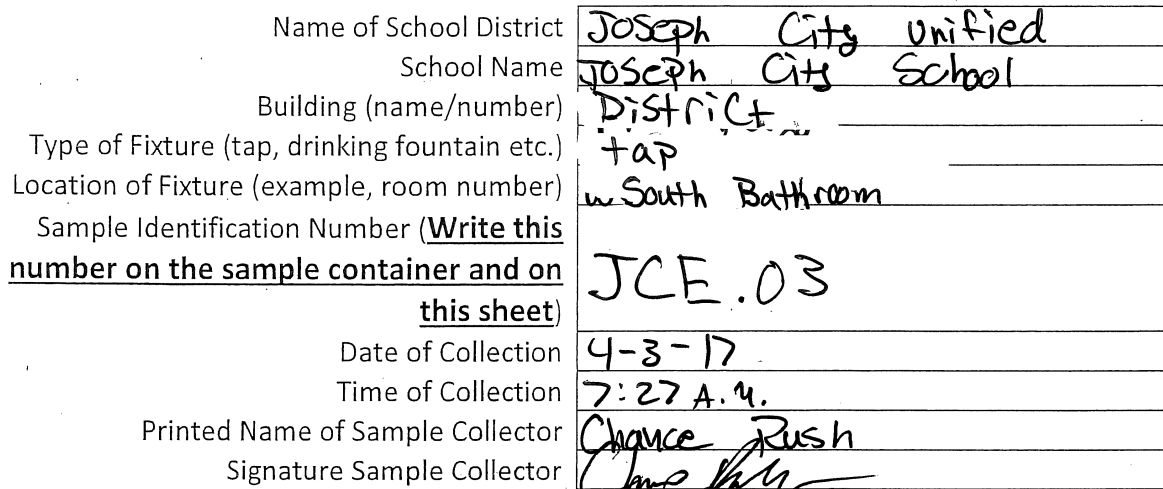 Name of School District Joseph City Unified
School Name Joseph City School
Building (name/number) District
Type of Fixture (tap, drinking fountain etc.) tap
Location of Fixture (example, room number) w South Bathroom
Sample Identification Number (Write this
number on the sample container and on JCE.03
this sheet)
Date of Collection 4-3-17
Time of Collection 7:27 A.M.
Printed Name of Sample Collector Chance Rush
Signature Sample Collector